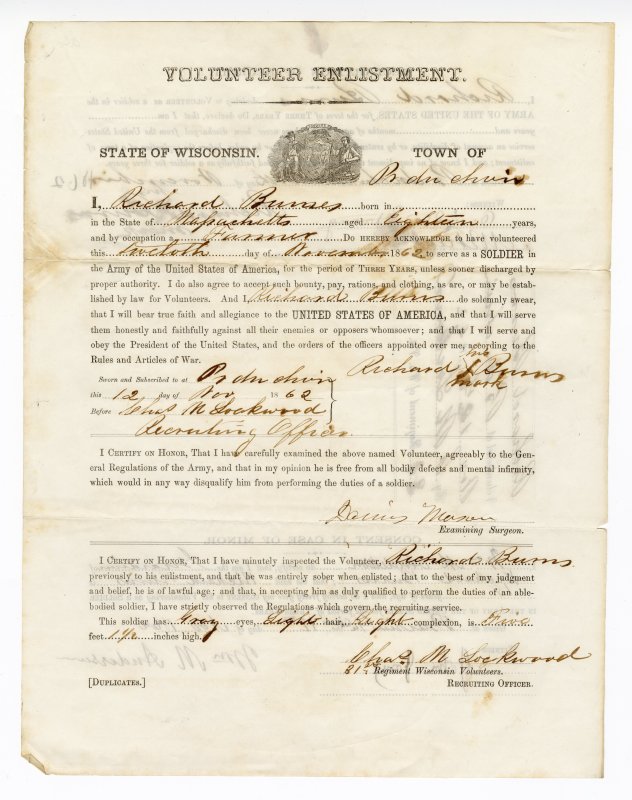 VOLUNTEER ENLISTMENT.
STATE OF WISCONSIN. TOWN OF
Pr du chein
I, Richard Burnes born in
in the State of Massachetts aged Eighteen years,
and by occupation a Farmer Do HEREBY ACKNOWLEDGE to have volunteered
this Twelvth day of November 1862 to serve as a SOLDIER in
the Army of the United States of America, for the period of THREE YEARS, unless sooner discharged by
proper authority. I do also agree to accept such bounty, pay, rations, and clothing, as are, or may be estab-
lished by law for Volunteers. And I Richard Burns do solemnly swear,
that I will bear true faith and allegiance to the UNITED STATES OF AMERICA, and that I will serve
them honestly and faithfully against all their enemies or opposers whomsoever; and that I will serve and
obey the President of the United States, and the orders of the officers appointed over me, according to the
Rules and Articles of War.
Richard his X mark Burns
Sworn and Subscribed to at Pr du chein
this 12 day of Nov 1862
Before Chas M Lockwood
Recruiting Officer.
I CERTIFY ON HONOR, That I have carefully examined the above named Volunteer, agreeably to the Gen-
eral Regulations of the Army, and that in my opinion he is free from all bodily defects and mental infirmity,
which would in any way disqualify him from performing the duties of a soldier.
Mason
Examining Surgeon.
I CERTIFY ON HONOR, That I have minutely inspected the Volunteer, Richard Burns
previously to his enlistment, and that he was entirely sober when enlisted; that to the best of my judgment
and belief, he is of lawful age; and that, in accepting him as duly qualified to perform the duties of an able-
bodied soldier, I have strictly observed the Regulations which govern the recruiting service.
This soldier has Gray eyes, Light hair, Light complexion, is Five
feet 1 1/2 inches high.
Chas M Lockwood
31st Regiment Wisconsin Volunteers.
RECRUITING OFFICER.
[DUPLICATES.]